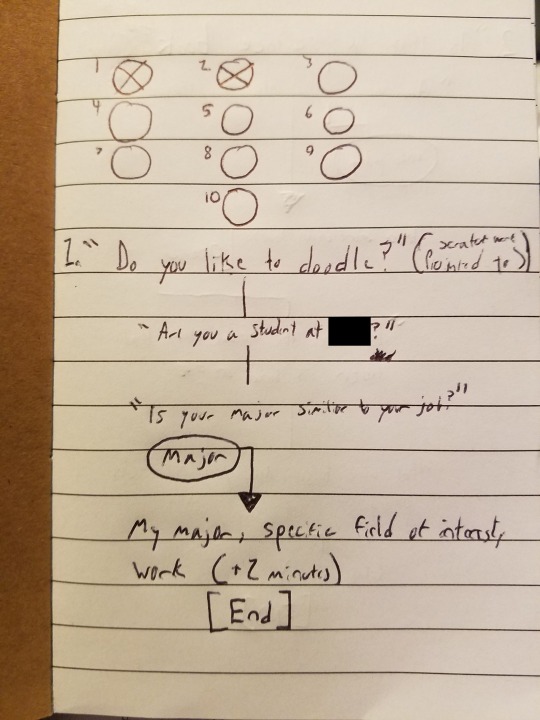 1 2 3
4 5 6
7 8 9
10
1. "Do you like to doodle?" (scratch work
pointed to)
"Are you a student at ?"
"Is your major similar to your job?"
Major
My major, specific field of interest,
work (+2 minutes)
[End]